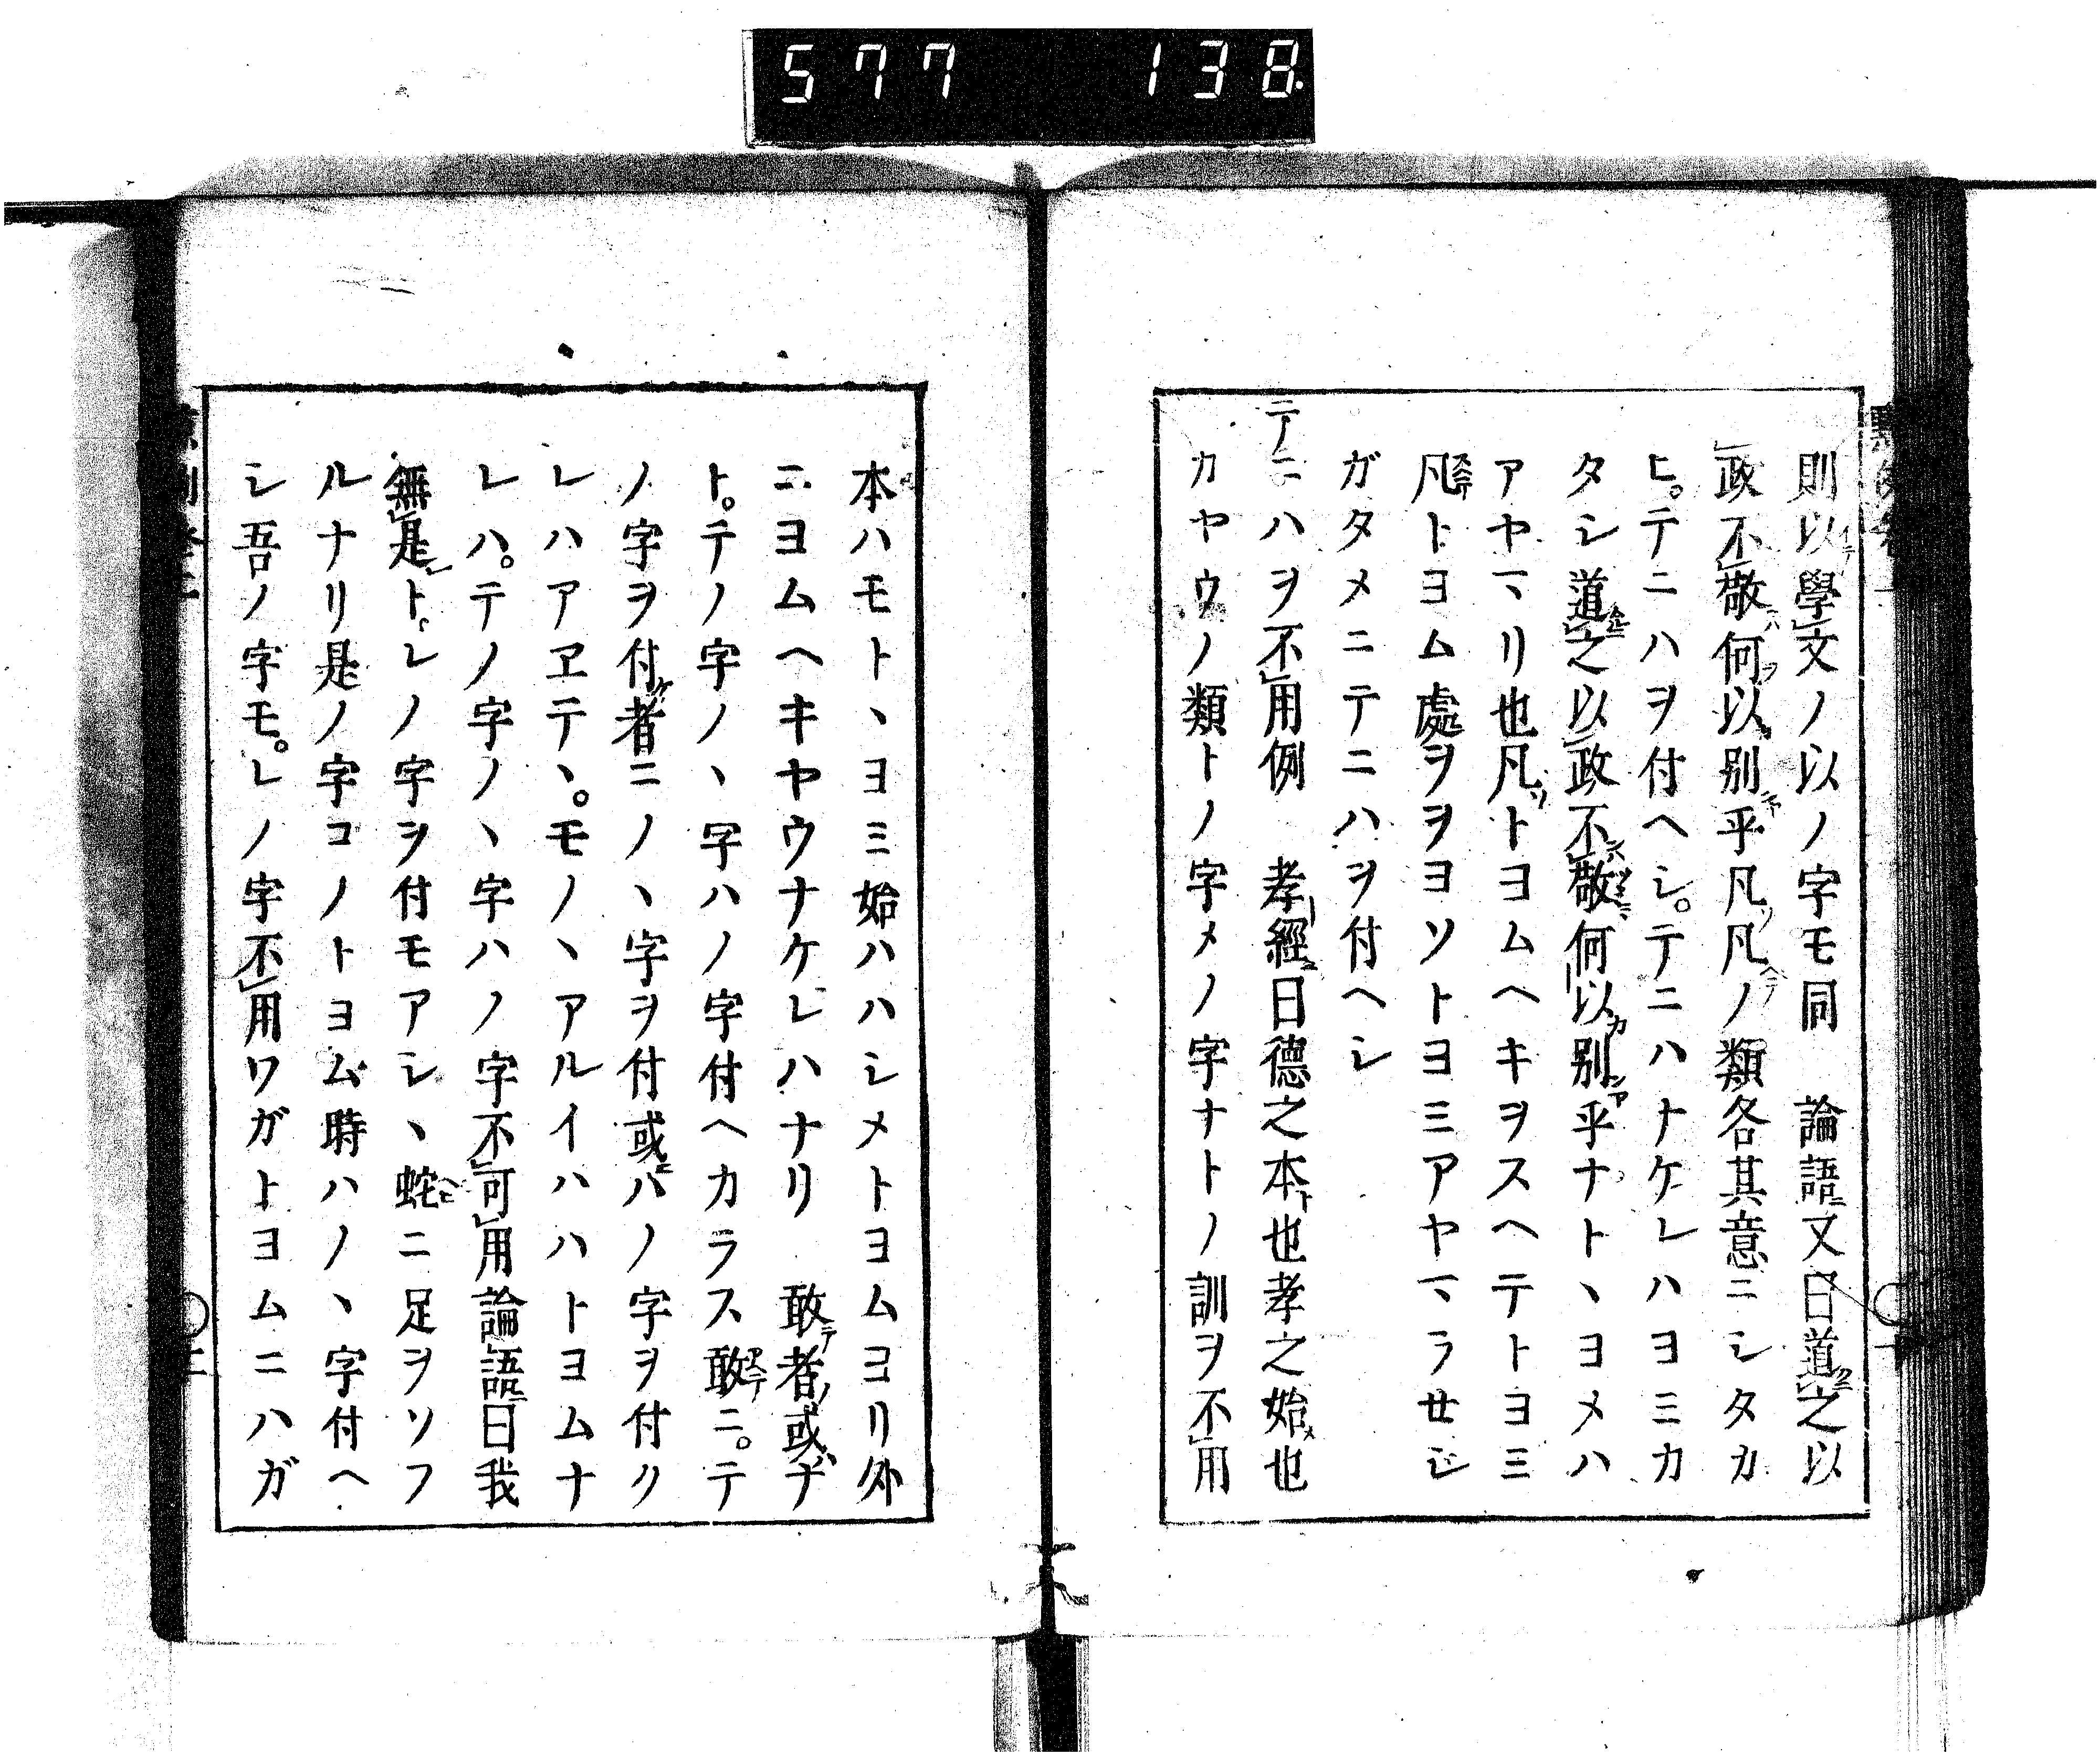 577 138
則以學文ノ以ノ字モ同 論語又曰道之以
政不敬何以別乎凡凡ノ類各其意ニシタカ
ヒ。テニハヲ付ヘシ。テニハナケレハヨミカ
タシ道之以政不敬何以別乎ナト丶ヨメハ
アヤマリ也凡トヨムヘキヲスヘテトヨミ
凡トヨム處ヲヲヨソトヨミアヤマラせジ
ガタメニテニハヲ付ヘシ
テニハヲ不用例 孝經曰德之本也孝之始也
カヤウノ類トノ字メノ字ナトノ訓ヲ不用
本ハモト丶ヨミ始ハハシメトヨムヨリ外
ニヨムヘキヤウナケレハナリ 敢者或ナ
ト。テノ字ノ丶字ハノ字付ヘカラス敢ニ。テ
ノ字ヲ付者ニノ丶字ヲ付或ハノ字ヲ付ク
レハアヱテ丶。モノ丶アルイハハトヨムナ
レハ。テノ字ノ丶字ハノ字不可用論語曰我
無是トレノ字ヲ付モアシ丶蛇ニ足ヲソフ
ルナリ是ノ字コノトヨム時ハノ丶字付ヘ
シ吾ノ字モ。レノ字不用ワガトヨムニハガ